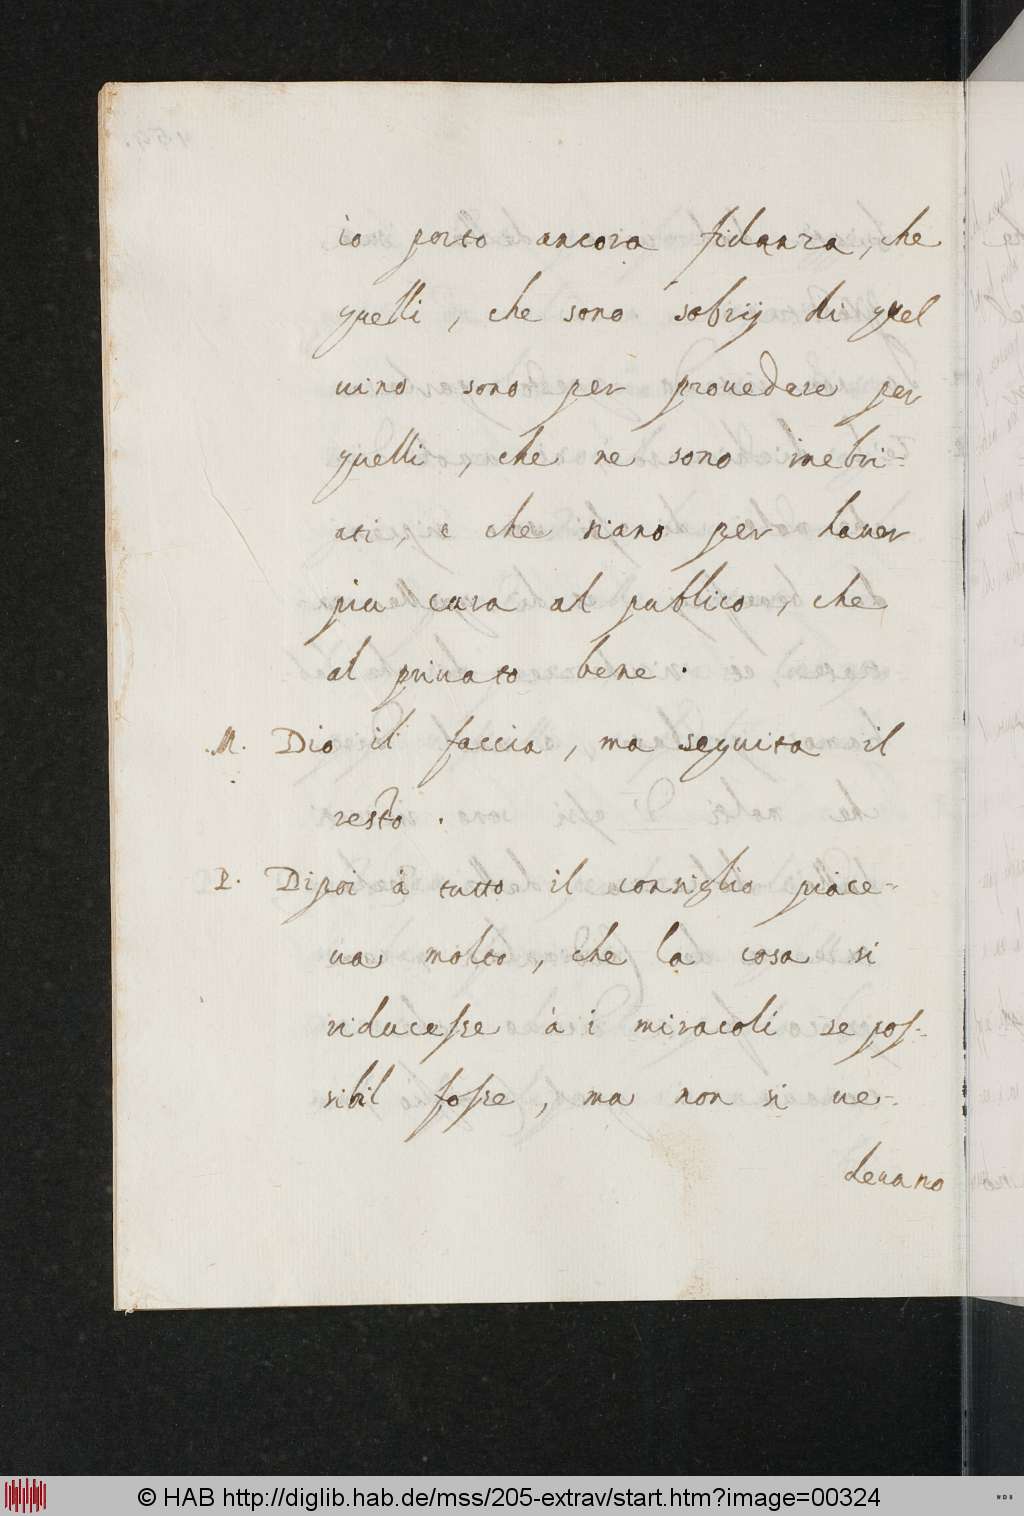 io porto ancora fidanza, che
quelli, che sono sobrij di quel
uino sono per prouedere per
quelli, che ne sono inebri-
ati, e che siano per hauer
piu cura al publico, che
al priuato bene.
M. Dio il faccia, ma seguita il
resto.
P. Dipoi à tutto il consiglio piace-
ua molto, che la cosa si
riducesse à i miracoli se pos-
sibil fosse, ma non si ue-
deuano
© HAB http://diglib.hab.de/mss/205-extrav/start.htm?image=00324